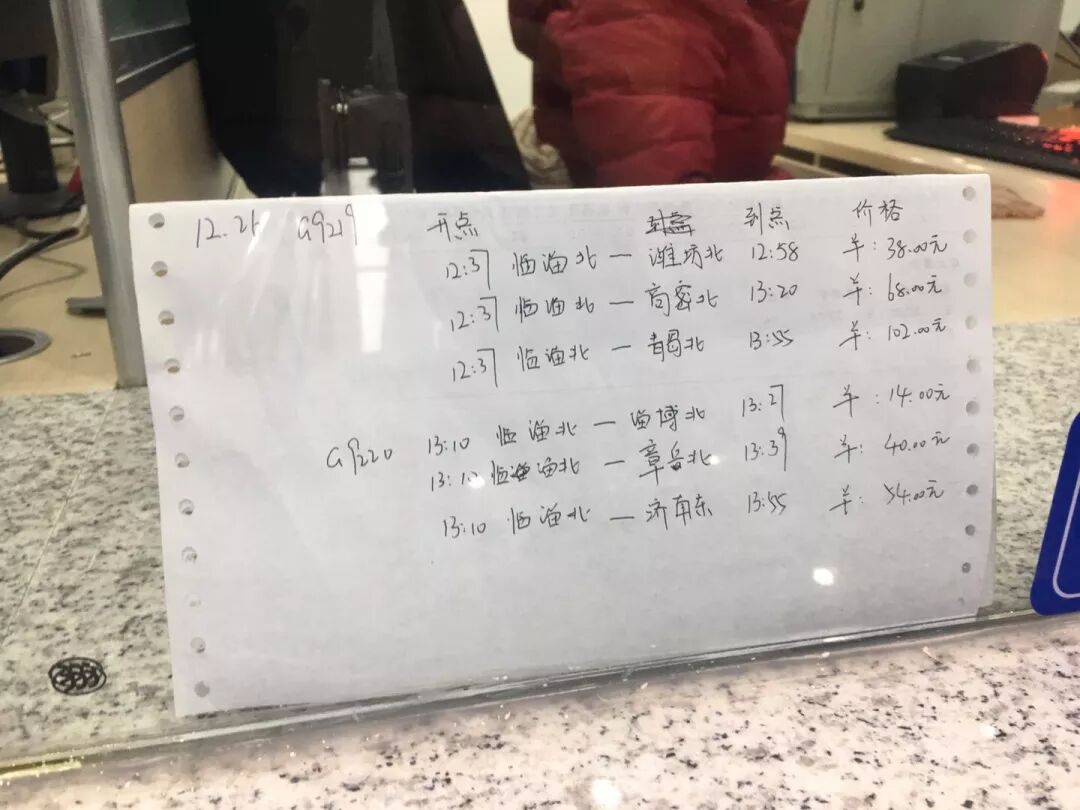 12.21 G9219 开点 到点 价格
12:37 临淄北 — 潍坊北 12:58 羊: 38.00元
12:37 临淄北 — 高密北 13:20 羊: 68.00元
12:37 临淄北 — 青岛北 13:55 羊: 102.00元
G9220 13:10 临淄北 — 淄博北 13:27 羊: 14.00元
13:10 临淄北 — 章丘北 13:39 羊: 40.00元
13:10 临淄北 — 济南东 13:55 羊: 54.00元